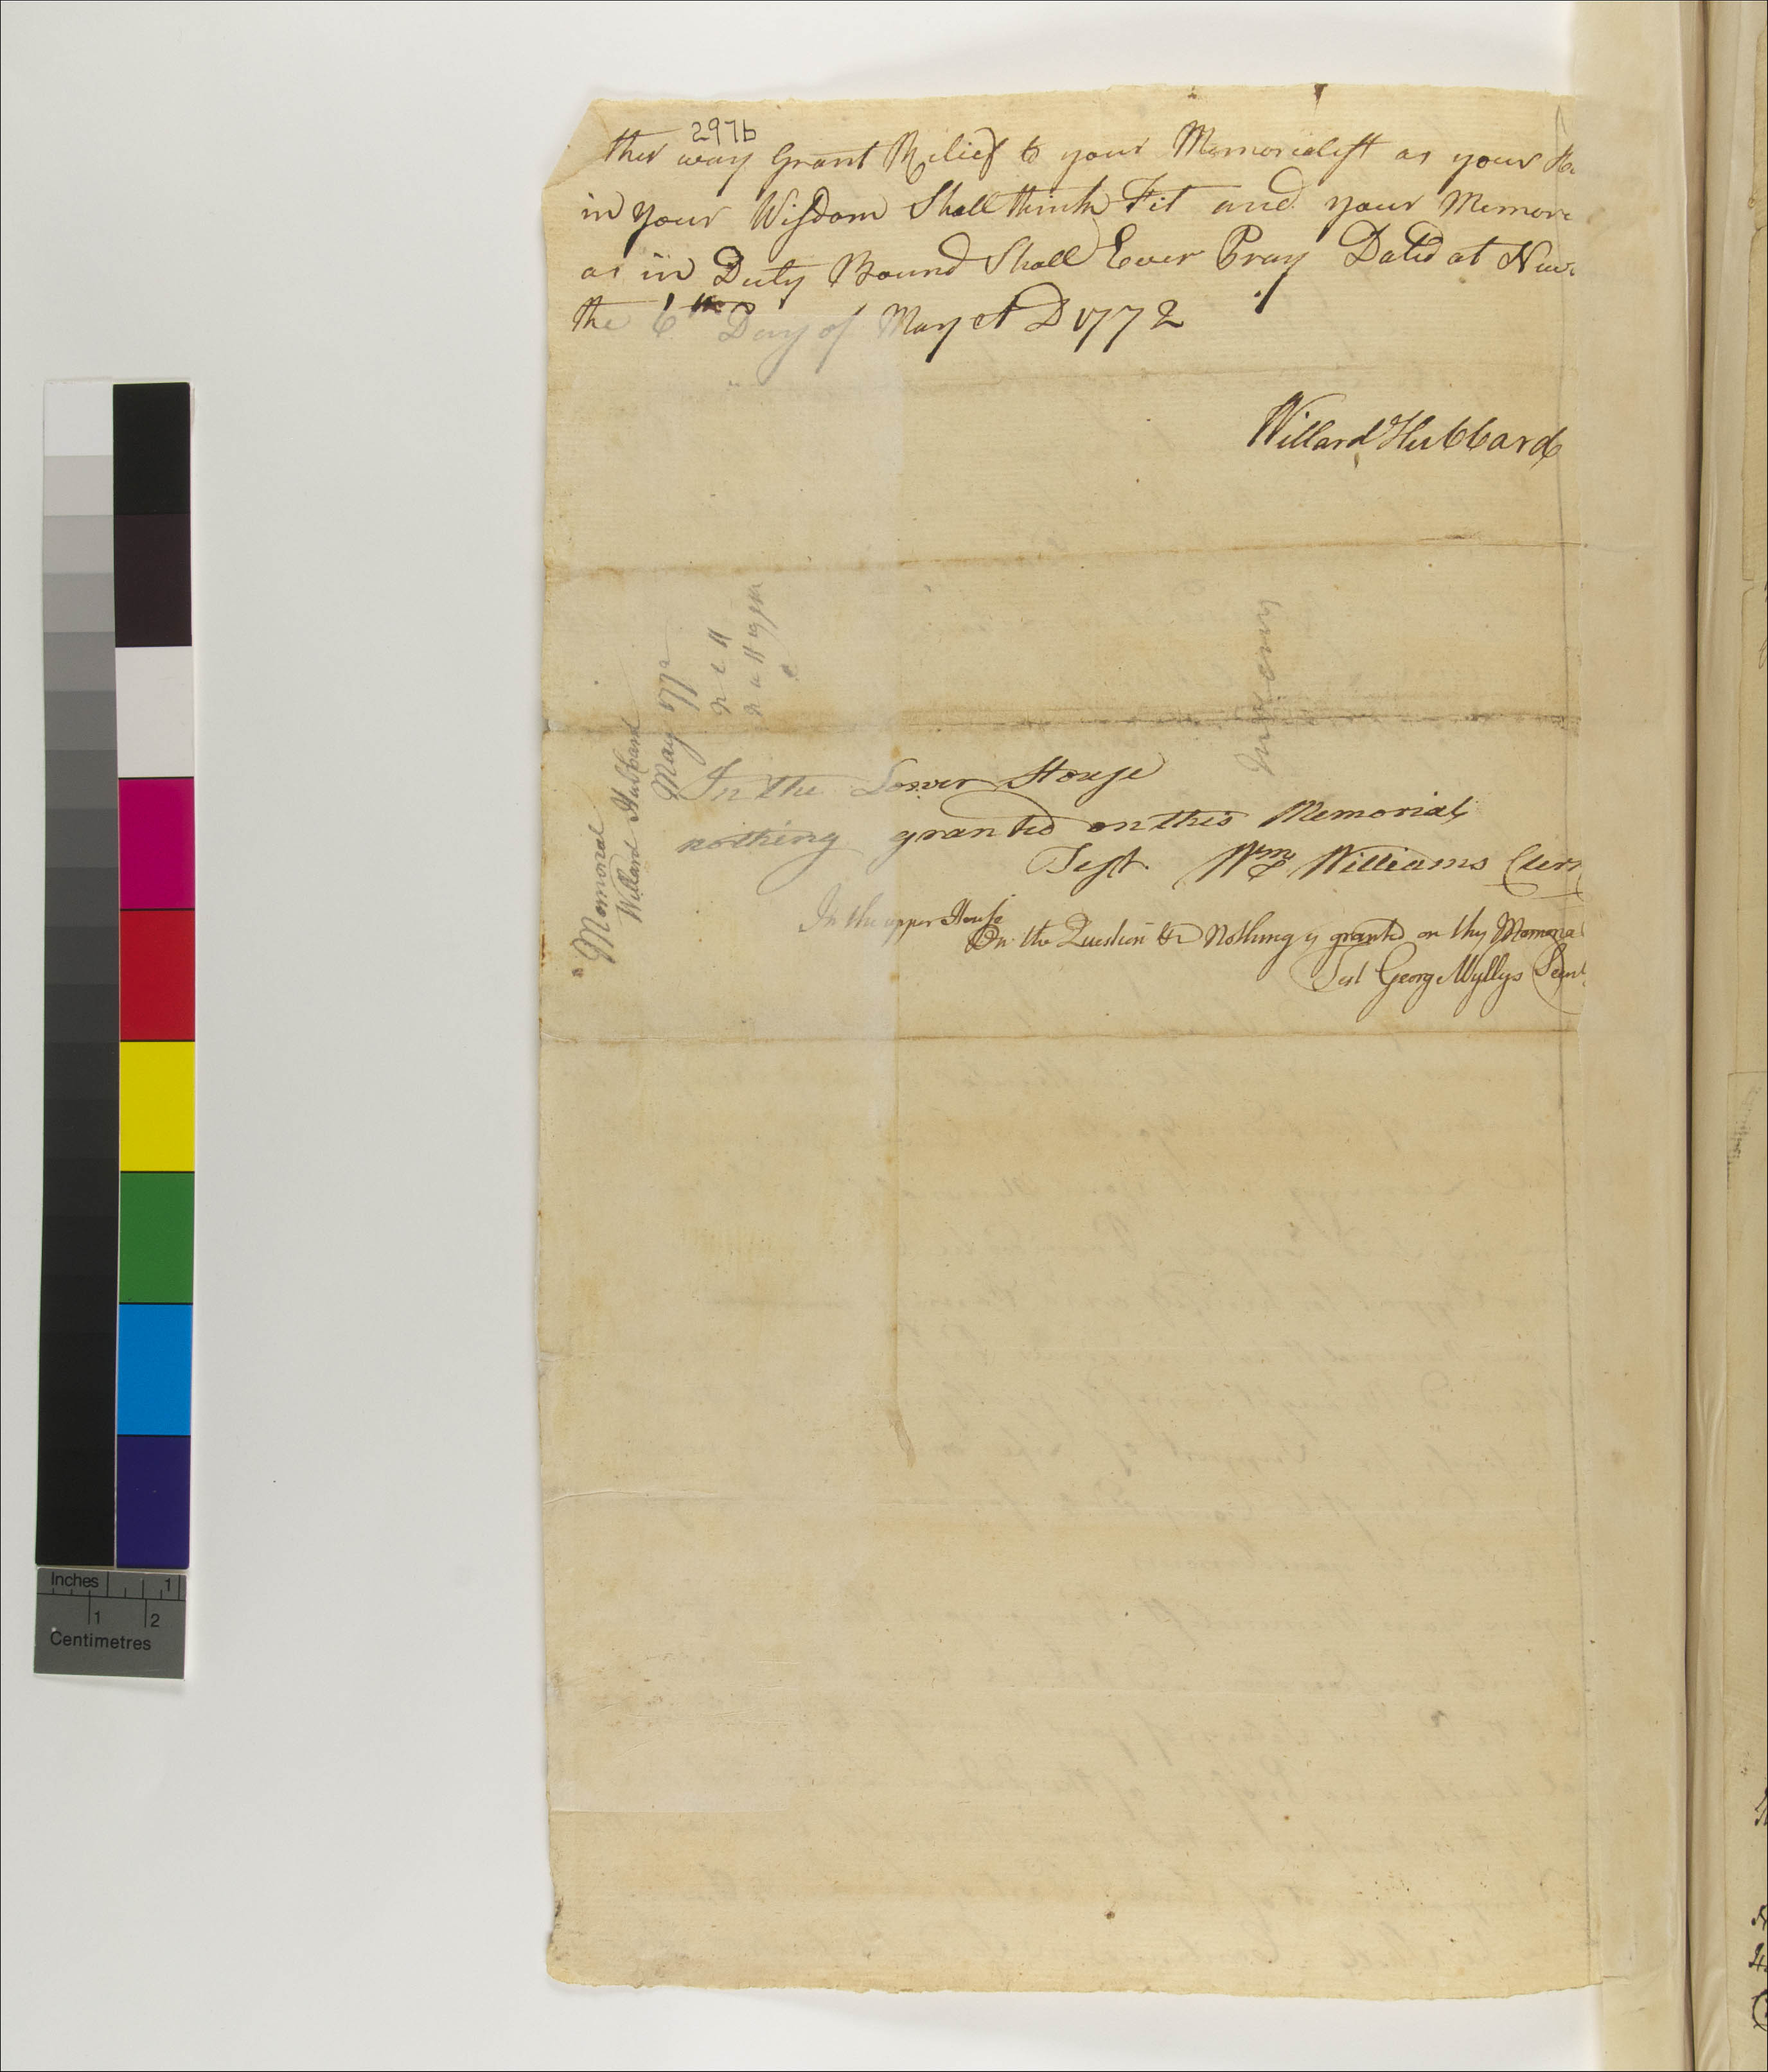 297b
ther way Grant Relief to your Memorialist as your
in your Wisdom Shall think Fit and your Memori
as in Duty Bound Shall Ever Pray Dated at New
the 6th Day of May A D 1772
Willard Hubbard
Memorial
Willard Hubbard
May 1772
n e H
n u H
In the Lower House
nothing granted on this Memorial
Test Wm Williams Clerk
In the upper House
On the Question &c Nothing is granted on this Memorial
Test George Wyllys Secret
Inches 1
1 2
Centimetres